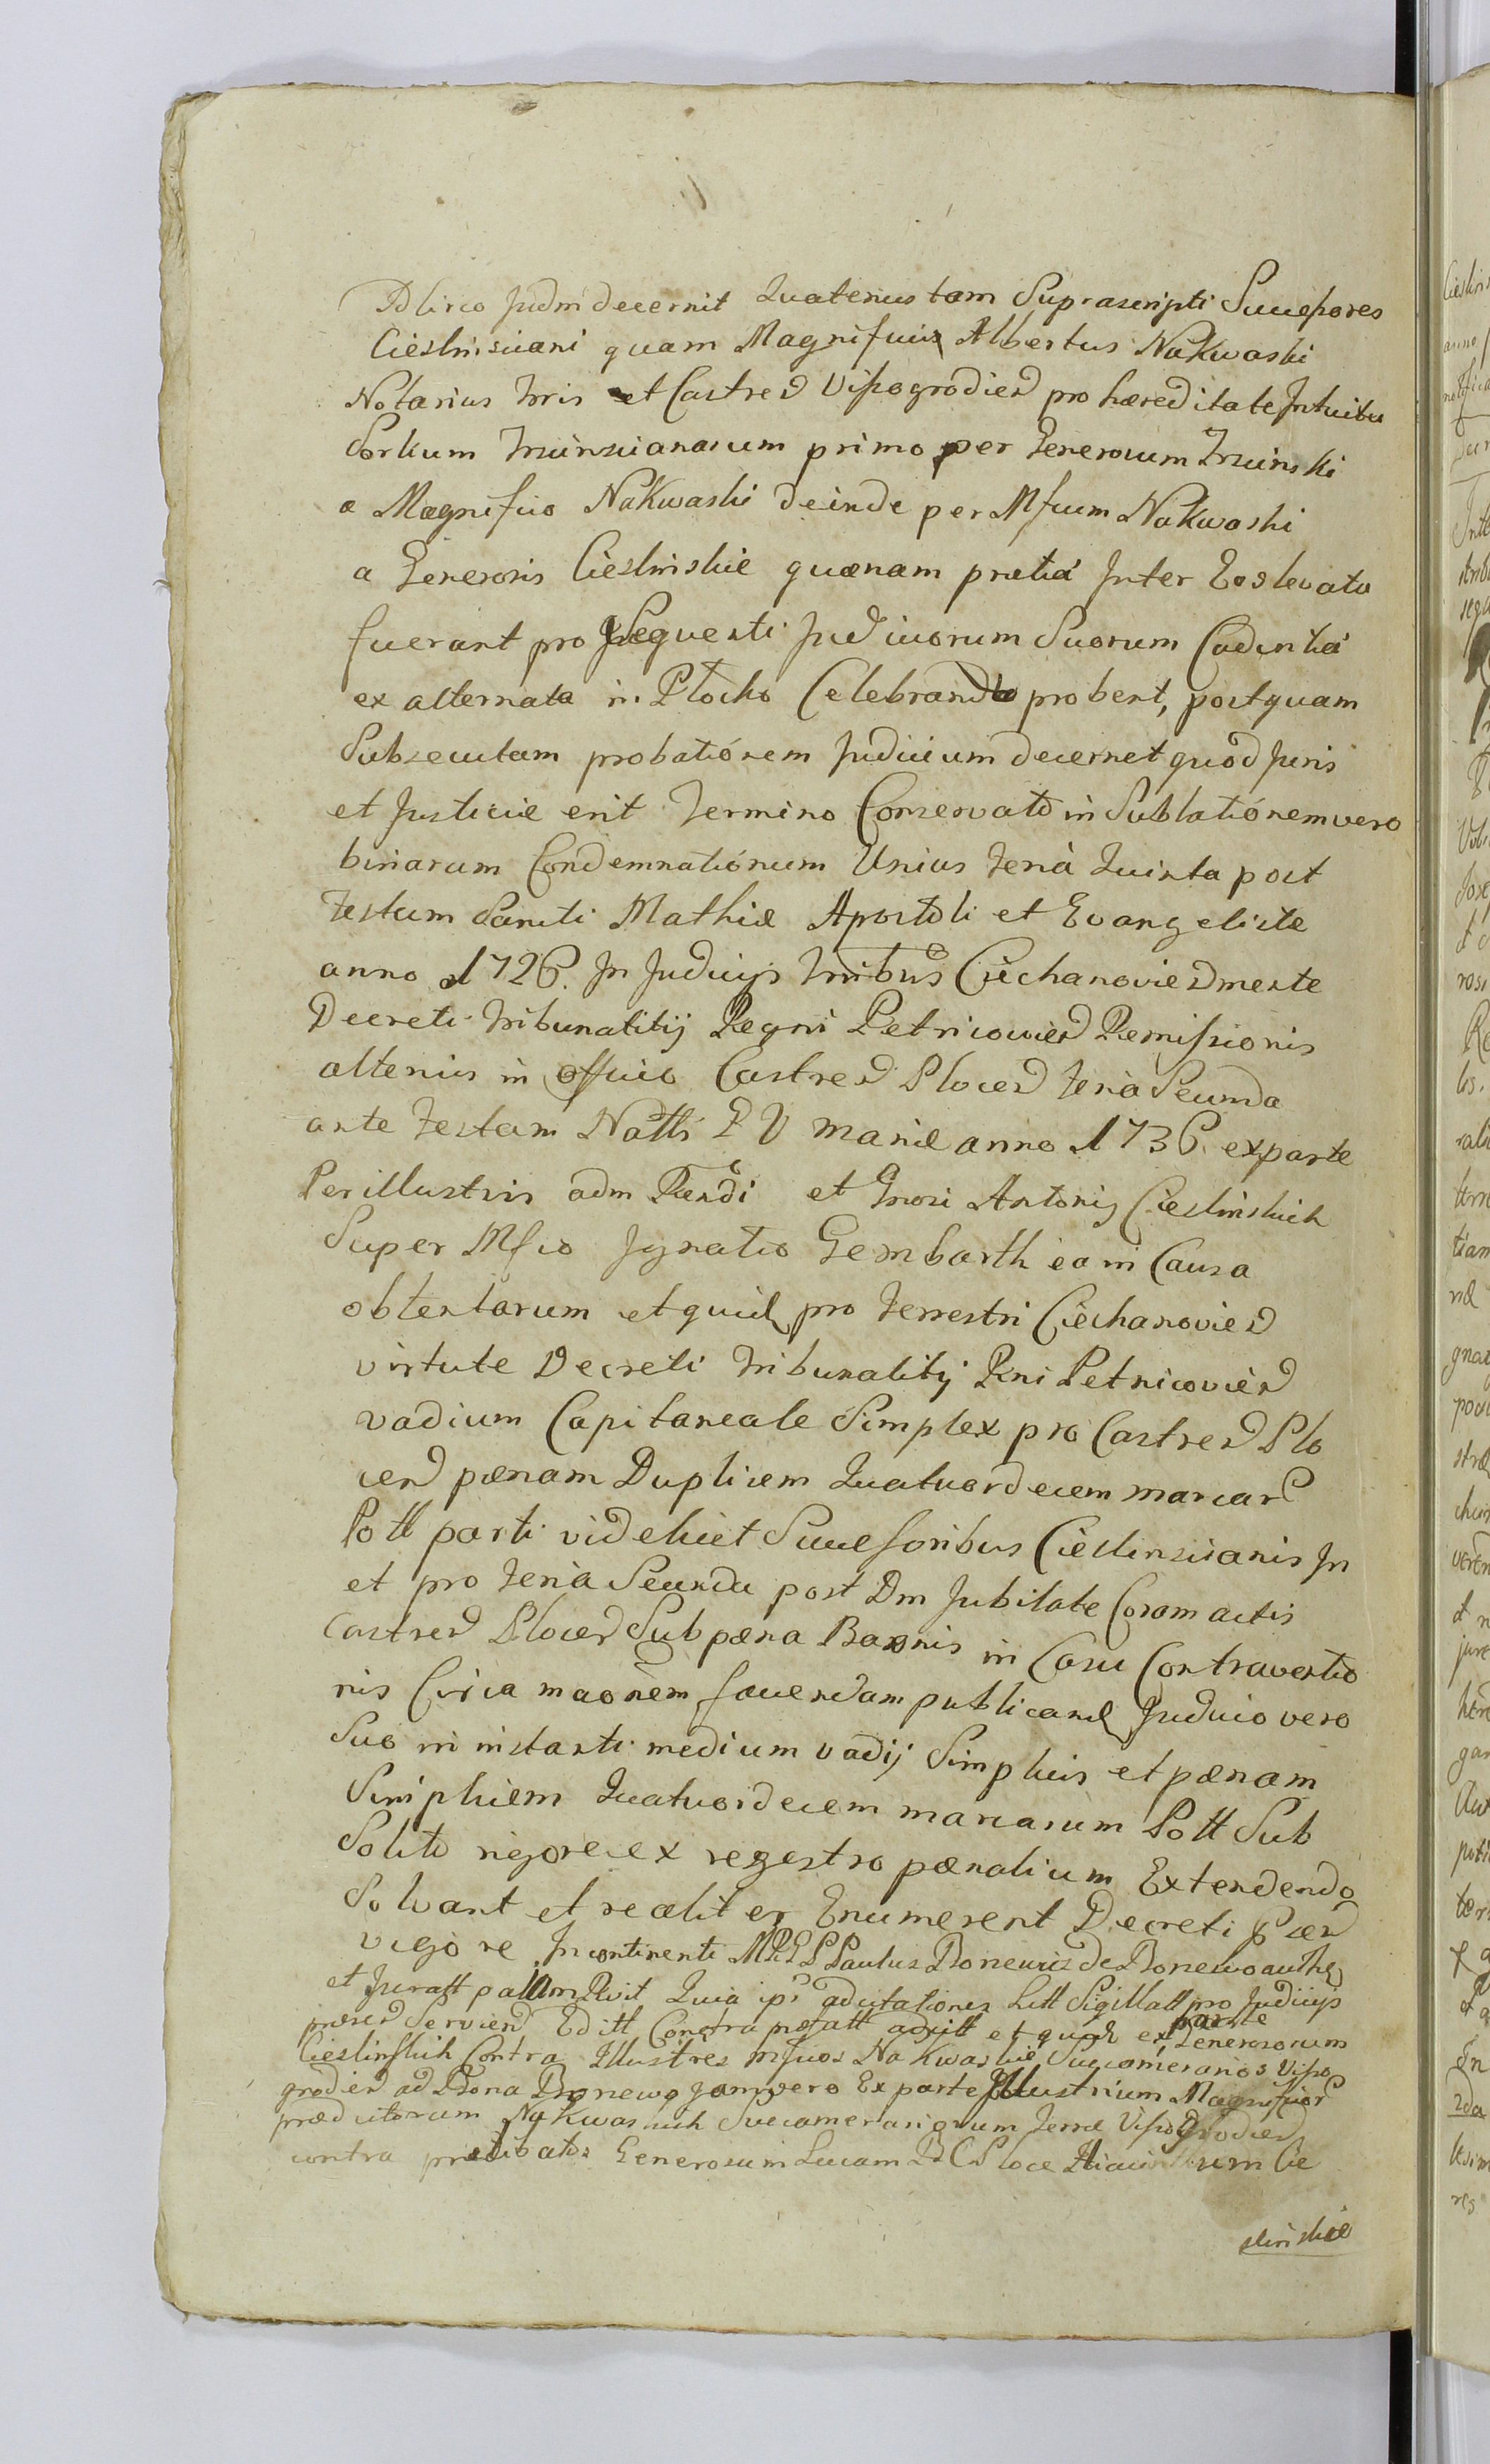 Idcirco Judm decernit Quatenus tam Suprascripti Succeſsores
Cieslinsciani quam Magnificus Albertus Nakwaski
Notarius trris et Castren Viſsogrodien pro hæreditate Intuitu
Sortium Trzcinscianarum primo per Generosum Trzcinski
a Magnifico Nakwaski deinde per Mfcum Nakwaski
a Generosis Cieslinskie quænam prætia Inter Eos levata
fuerant pro Sequenti Judiciorum Suorum Cadentia
ex alternata in Plocko Celebranda probent, postquam
Subsecutam probationem Judicium decernet quod Juris
et Justiciæ erit Termino Conservato in Sublationem vero
binarum Condemnationum Unius feria Quinta post
Festum Sancti Mathiæ Apostoli et Evangelistæ
anno 1726. In Judicijs trribus Ciechanovien mente
Decreti Tribunalitij Regni Petricovien Remiſsionis
alterius in officio Castren Plocen feria Secunda
ante Festum Nattis B V Mariæ anno 1736. ex parte
Perillustris adm Rendi et Gnosi Antonij Cieslinskich
Super Mfco Ignatio Gembarth ea in Causa
obtentarum et quidem pro terrestri Ciechanovien
virtute Decreti Tribunalitij Rni Petricovien
vadium Capitaneale Simplex pro Castren Plo
cen pænam Duplicem Quatuordecem marcar
Poll parti videlicet Succeſsoribus Cieslinscianis In
et pro feria Secunda post Dm Jubilate Coram actis
Castren Plocen Sub pæna Bannis in Casu Contraventio
nis Circa maonem favendam publicand Judicio vero
Suo in instanti medium vadij Simplicis et pænam
Simplicem Quatuordecem marcarum Poll Sub
Solito rigore ex regestro pænalium Extendendo
Solvant et realiter Enumerent Decreti pæn
vigore Incontinenti Paulus Boneuis de Bonewo auth
et Juratt palam Rvit Quia ips adcitationes Litt Sigillatt pro Judicijs
præsen Servien Editt Contra præfatt et quidem ex parte Generosorum
Cieslinſkich Contra Illustres Mfcos Nakwaskie Succameranos Viſso
grodien ad Bona Bonewo Jam vero Ex parte Illustrium Magnificor
prædictorum Nakwaskich Succamerariorum Terræ Viſsogrodien
contra prædictatos Generosum Lucam B C Ploce Cie
slinskie